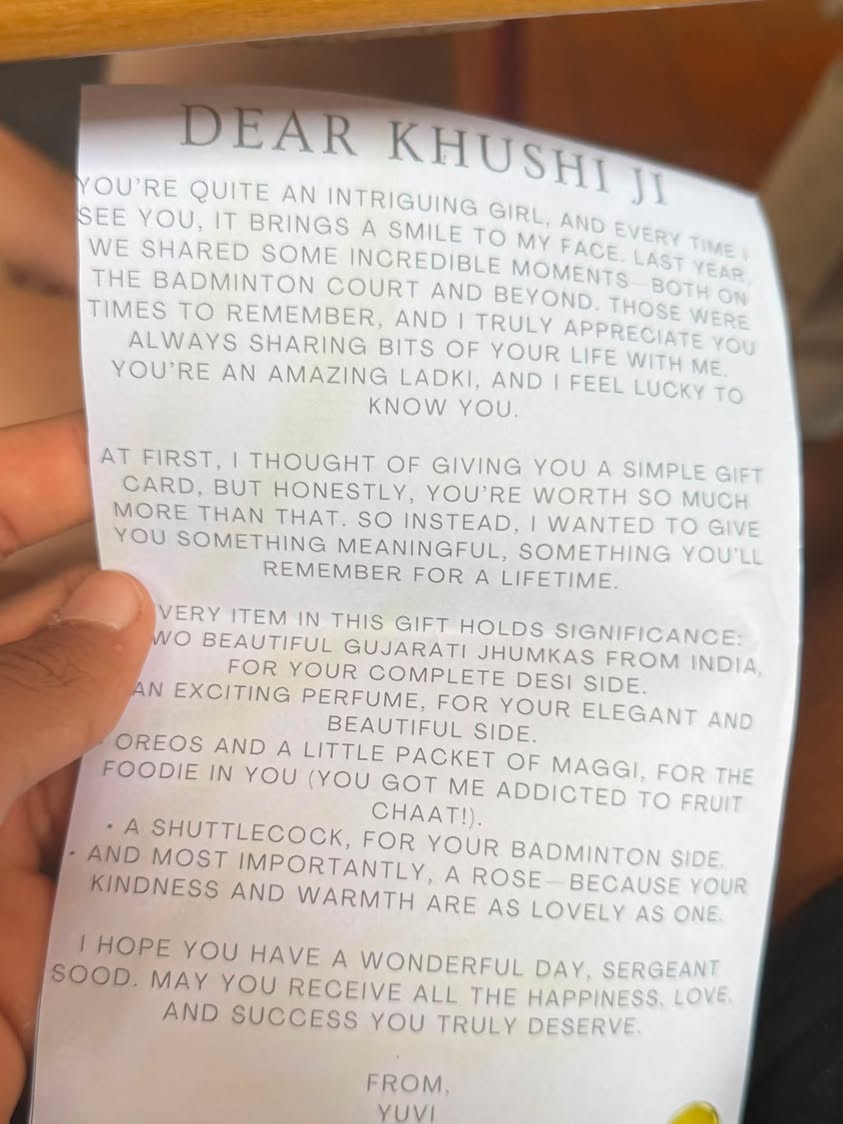 DEAR KHUSHI JI
YOU'RE QUITE AN INTRIGUING GIRL, AND EVERY TIME I
SEE YOU, IT BRINGS A SMILE TO MY FACE. LAST YEAR,
WE SHARED SOME INCREDIBLE MOMENTS—BOTH ON
THE BADMINTON COURT AND BEYOND. THOSE WERE
TIMES TO REMEMBER, AND I TRULY APPRECIATE YOU
ALWAYS SHARING BITS OF YOUR LIFE WITH ME.
YOU'RE AN AMAZING LADKI, AND I FEEL LUCKY TO
KNOW YOU.
AT FIRST, I THOUGHT OF GIVING YOU A SIMPLE GIFT
CARD, BUT HONESTLY, YOU'RE WORTH SO MUCH
MORE THAN THAT. SO INSTEAD, I WANTED TO GIVE
YOU SOMETHING MEANINGFUL, SOMETHING YOU'LL
REMEMBER FOR A LIFETIME.
VERY ITEM IN THIS GIFT HOLDS SIGNIFICANCE:
WO BEAUTIFUL GUJARATI JHUMKAS FROM INDIA,
FOR YOUR COMPLETE DESI SIDE.
AN EXCITING PERFUME, FOR YOUR ELEGANT AND
BEAUTIFUL SIDE.
• OREOS AND A LITTLE PACKET OF MAGGI, FOR THE
FOODIE IN YOU (YOU GOT ME ADDICTED TO FRUIT
CHAAT!).
• A SHUTTLECOCK, FOR YOUR BADMINTON SIDE.
• AND MOST IMPORTANTLY, A ROSE—BECAUSE YOUR
KINDNESS AND WARMTH ARE AS LOVELY AS ONE.
I HOPE YOU HAVE A WONDERFUL DAY, SERGEANT
SOOD. MAY YOU RECEIVE ALL THE HAPPINESS, LOVE,
AND SUCCESS YOU TRULY DESERVE.
FROM,
YUVI